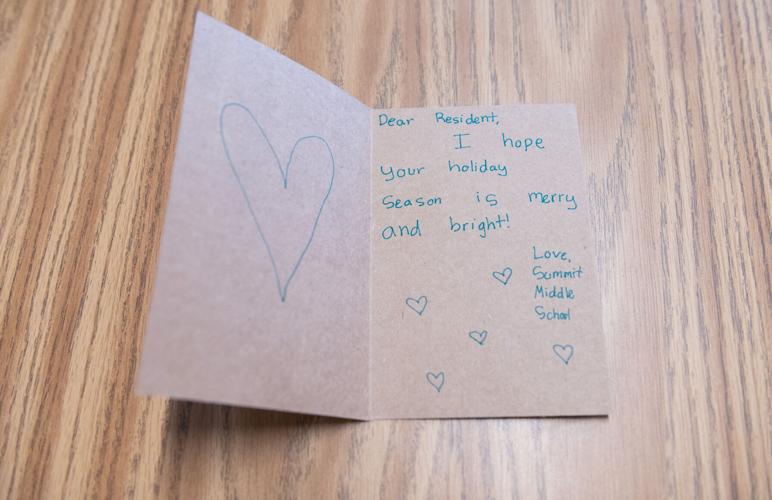 Dear Resident,
I hope
your holiday
Season is merry
and bright!
Love,
Summit
Middle
School